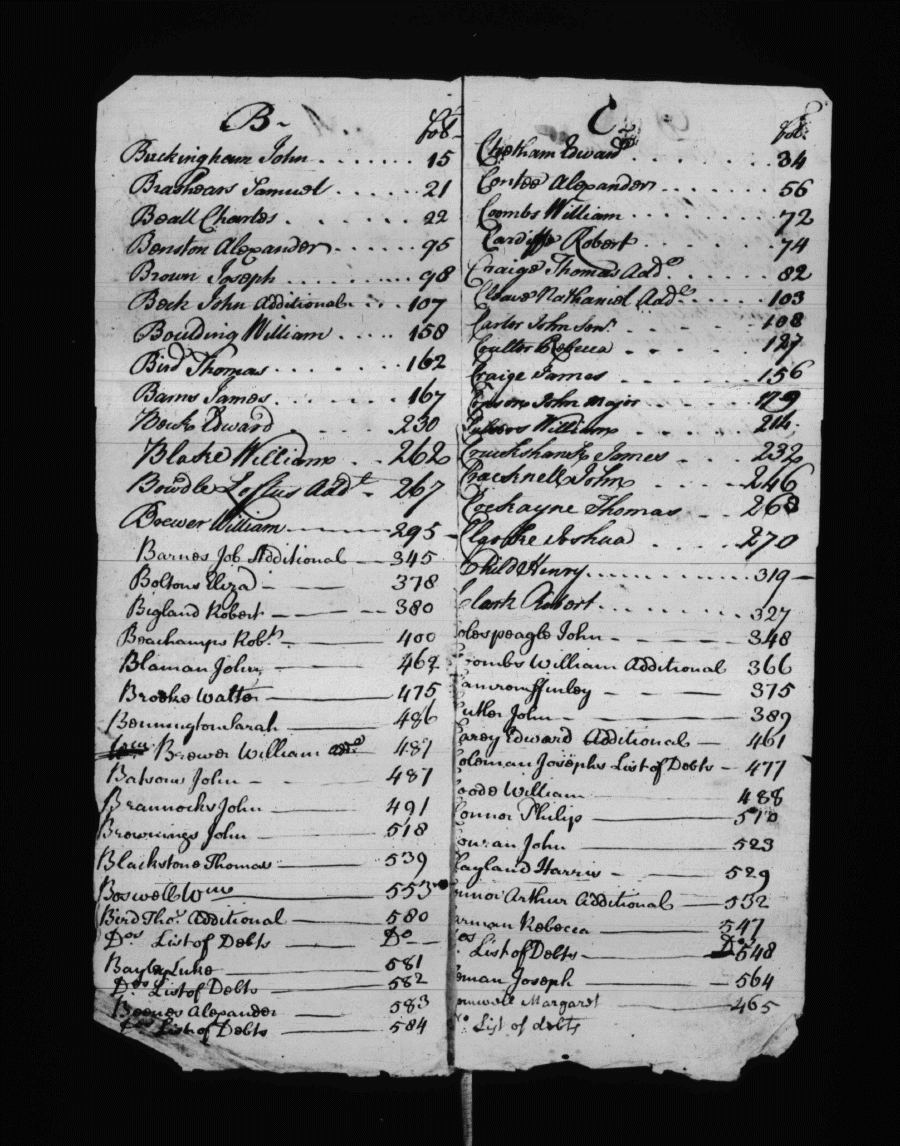 B
fol
Buckingham John 15
Brashears Samuel 21
Beall Charles 22
Benston Alexander 95
Brown Joseph 98
Beck John Additional 107
Boulding William 158
Bird Thomas 162
Barns James 167
Beck Edward 230
Blake William 262
Bowdle Loftus Addt 267
Brewer William 295
Barnes Job Additional 345
Boltons Eliza 378
Bigland Robert 380
Beachamps Robt 400
Blaman John 462
Brooke Walter 475
Bennington Sarah 486
Brewer William addl 487
Batsons John 487
Brannocks John 491
Brownings John 518
Blackstone Thomas 539
Boswell Wm 553
Bird Thos. Additional 580
Dos List of Debts Do
Bayley Luke 581
Dos List of Debts 582
Beenes Alexander 583
Dos List of Debts 584
C
fol
Chetham Edward 34
Contee Alexander 56
Coombs William 72
Cardiffe Robert 74
Craige Thomas Addl 82
Nathaniel Addl 103
Carter John Senr 108
Coulter Rebecca 127
Craige James 156
John Major 179
William 214
Cruickshanks James 232
Cracknell John 246
Thomas 268
Clarke Joshua 270
Child Henry 319
Clark Robert 327
olespeagle John 348
oombs William Additional 366
ameron Finley 375
uther John 389
arey Edward Additional 461
oleman Josephs List of Debts 477
oode William 488
onnor Philip 510
John 523
layland Harris 529
nnor Arthur Additional 532
arman Rebecca 547
os List of Debts Do 548
eman Joseph 564
omwell Margaret 465
o List of debts